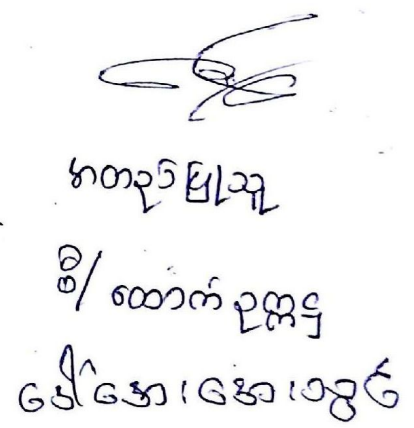 အတည်ပြုသူ
စီ/ထောက်ဥက္ကဋ္ဌ
ဒေါ်အေးအေးသွင်